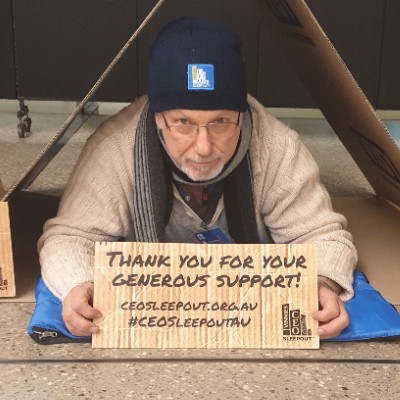 THANK YOU FOR YOUR
GENEROUS SUPPORT!
CEOSLEEPOUT.ORG.AU
#CEOSLEEPOUTAU
CEO
SLEEPOUT